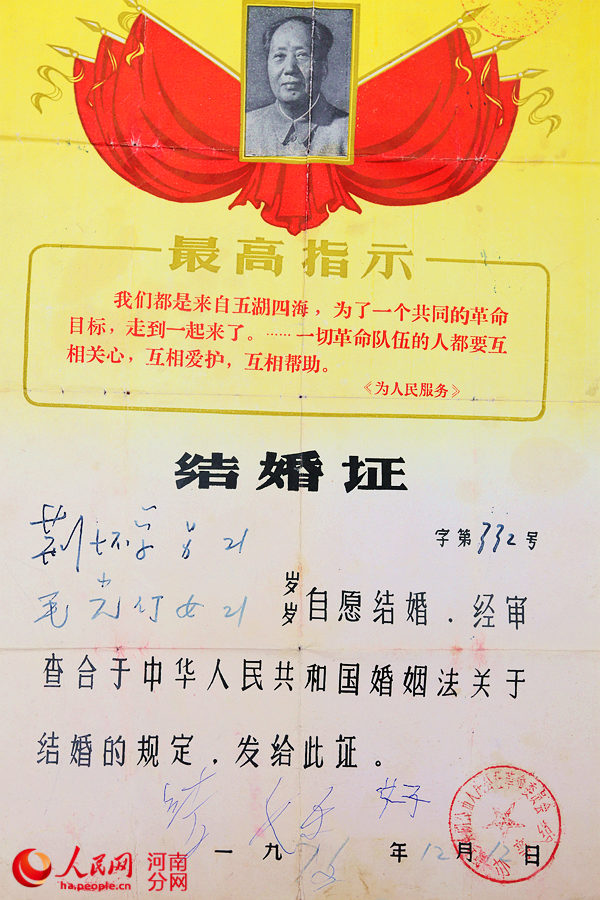 最高指示
我们都是来自五湖四海，为了一个共同的革命
目标，走到一起来了。……一切革命队伍的人都要互
相关心，互相爱护，互相帮助。
《为人民服务》
结婚证
字第332号
男 21
毛 女 21
岁
岁
自愿结婚．经审
查合于中华人民共和国婚姻法关于
结婚的规定．发给此证。
一九 年12月12日
人民网 河南
分网
ha.people.cn